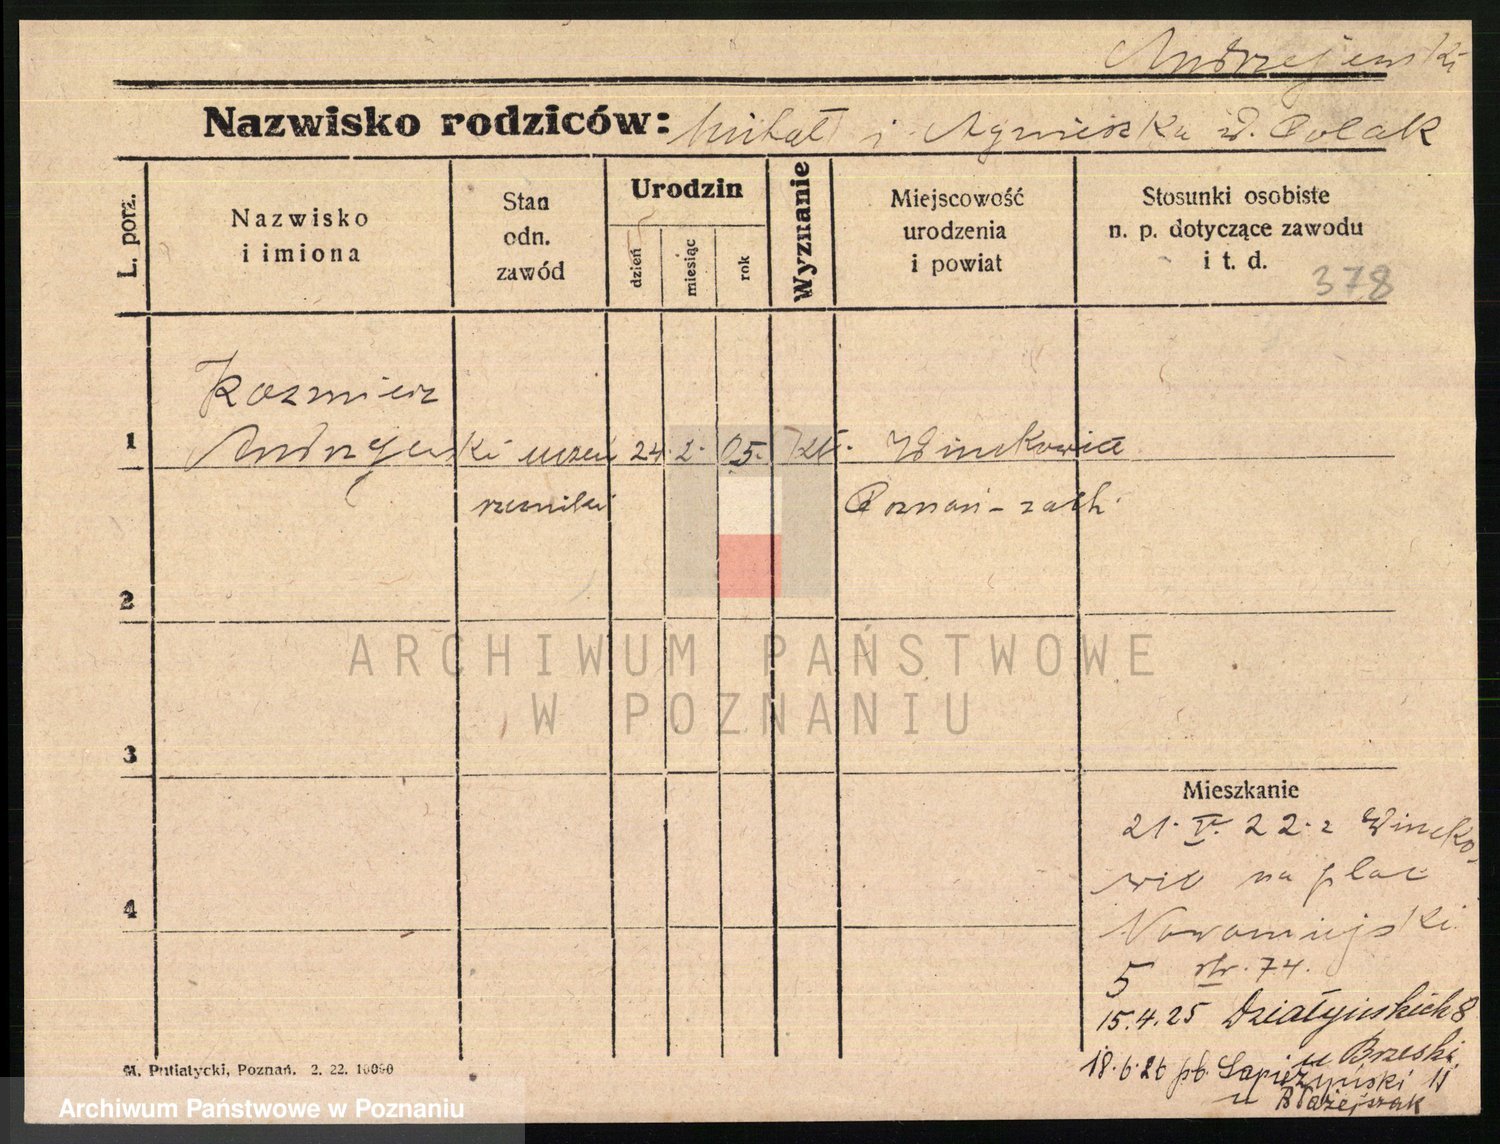 Andrzejewski
Nazwisko rodziców: Michał i Agnieszka z d. Polak
L. porz.
Nazwisko
i imiona
Stan
odn.
zawód
Urodzin
dzień
miesiąc
rok
Wyznanie
Miejscowość
urodzenia
i powiat
Stosunki osobiste
n. p. dotyczące zawodu
i t. d.
378
Kazmierz
1 Andrzejewski uczeń 24. 2. 05.
rzeźnicki Poznań - zach.
2
ARCHIWUM PAŃSTWOWE
W POZNANIU
3
Mieszkanie
21. V. 22. z Wincko-
wic na plac
4
Nowomiejski
5 str. 74.
15.4.25 Działyńskich 8
u Brzeski
18.6.26 pb. Sapieżyński 11
u Błażejczak
M. Putiatycki, Poznań. 2. 22. 10000
Archiwum Państwowe w Poznaniu